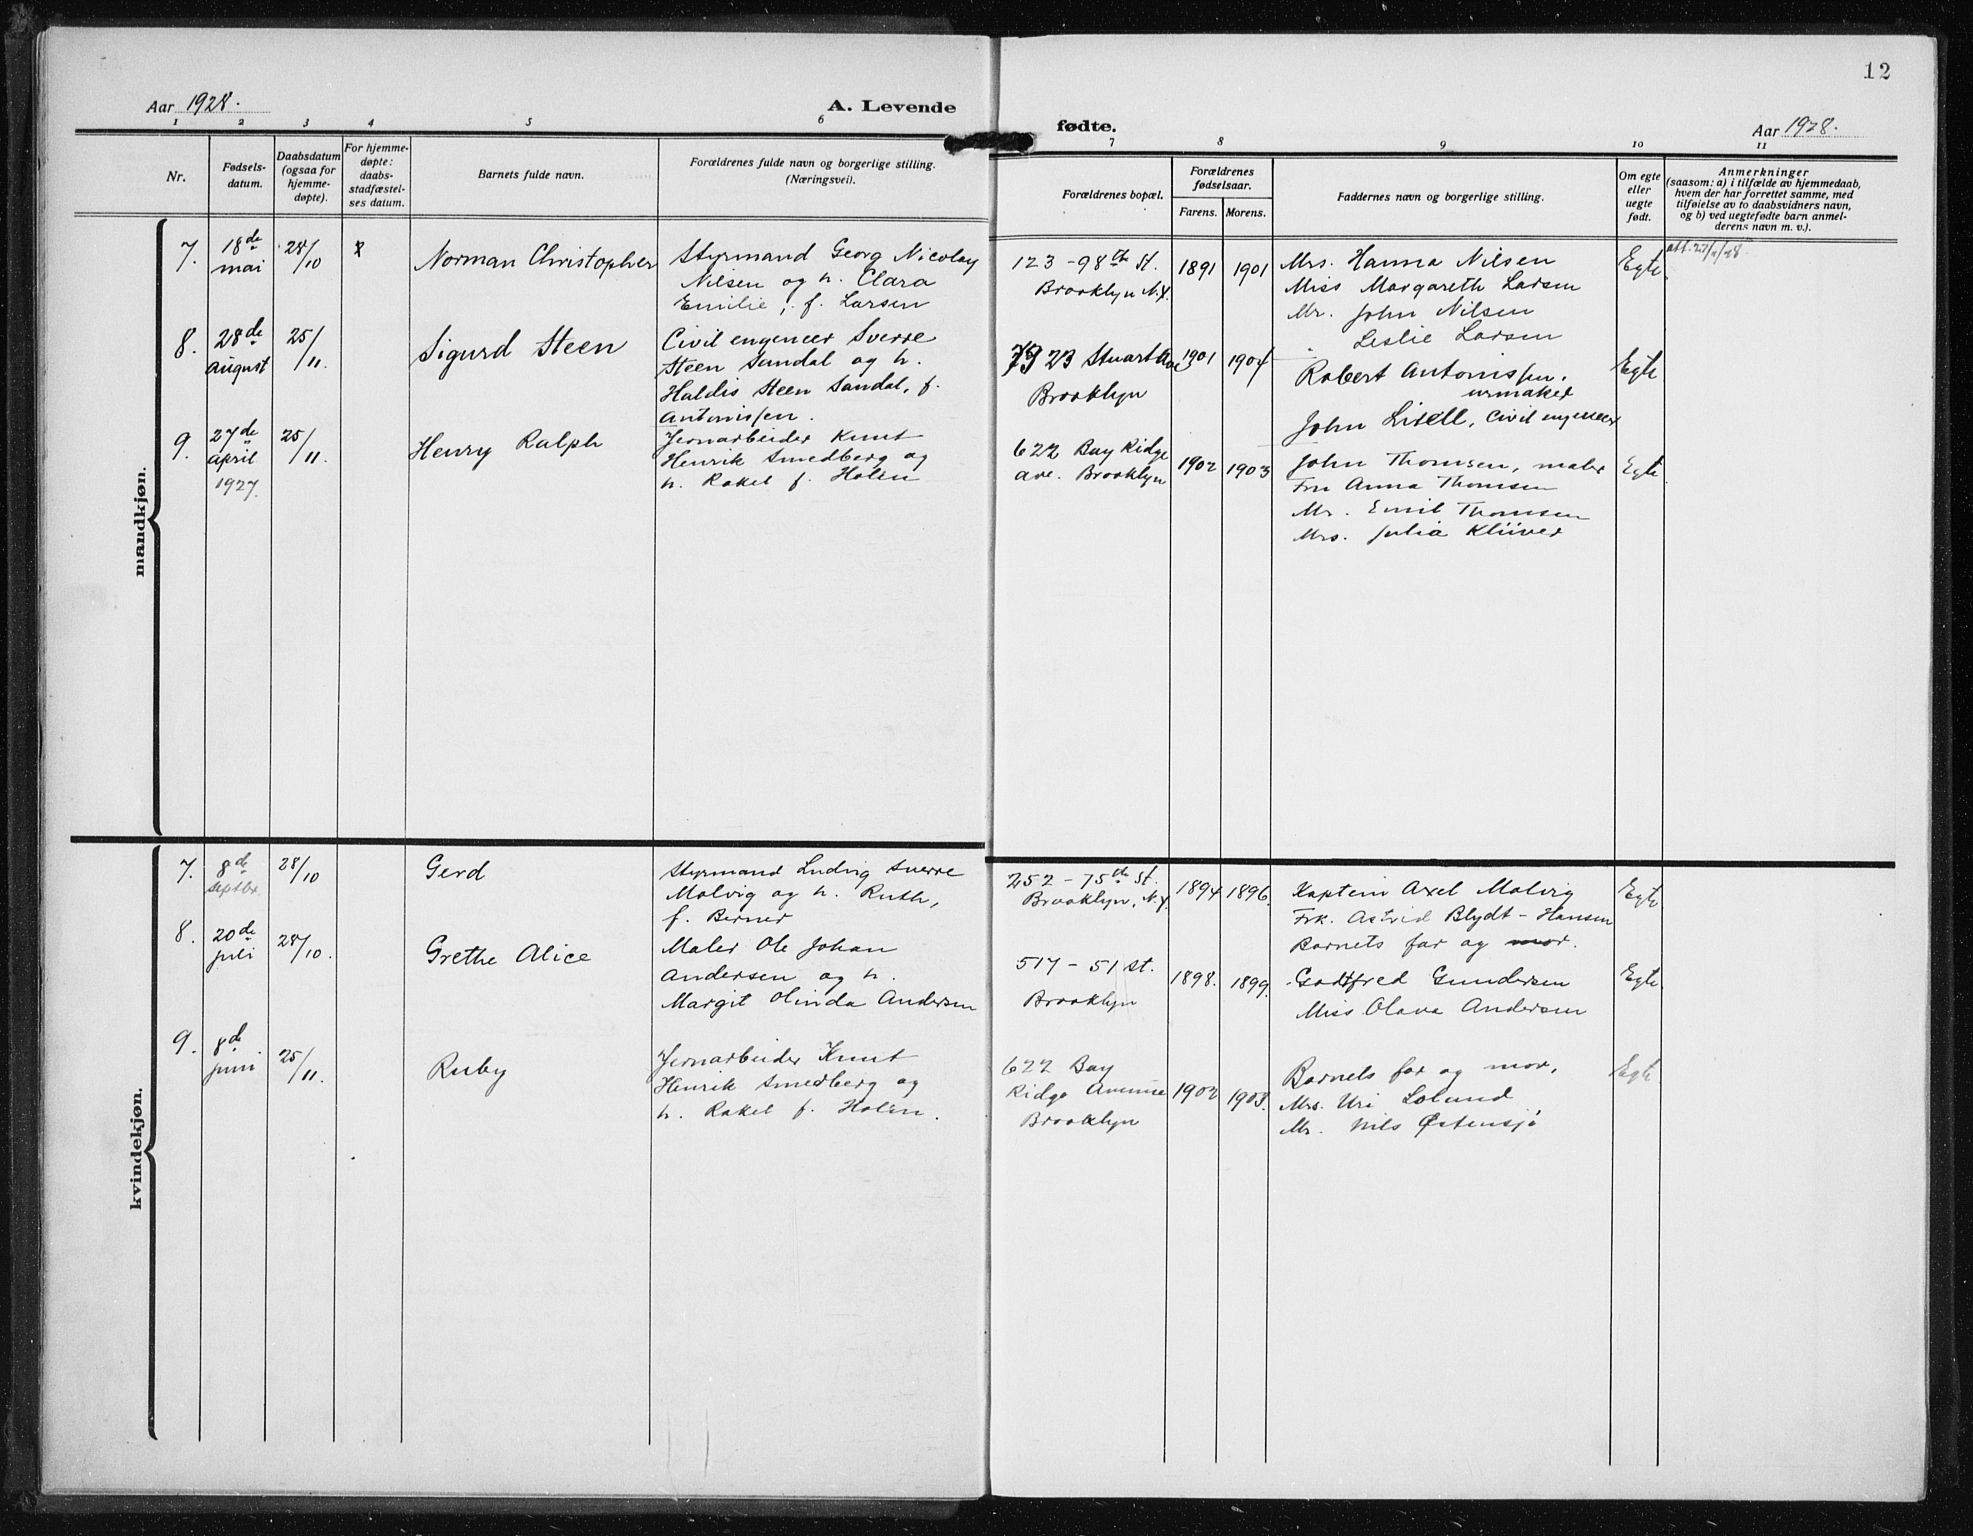 12
Aar 1928.
A. Levende
fødte.
Aar 1928.
1 2 3 4 5 6 7 8 9 10 11
Nr.
Fødsels-
datum.
Daabsdatum
(ogsaa for
hjemme-
døpte).
For hjemme-
døpte:
daabs-
stadfæstel-
ses datum.
Barnets fulde navn.
Forældrenes fulde navn og borgerlige stilling.
(Næringsvei).
Forældrenes bopæl.
Forældrenes
fødselsaar.
Farens. Morens.
Faddernes navn og borgerlige stilling.
Om egte
eller
uegte
født.
Anmerkninger
(saasom: a) i tilfælde av hjemmedaab,
hvem der har forrettet samme, med
tilføielse av to daabsvidners navn,
og b) ved uegtefødte barn anmel-
derens navn m. v.).
mandkjøn.
7.
18de
mai
28/10
Norman Christopher
Styrmand Georg Nicolay
Nilsen og h. Clara
Emilie, f. Larsen
123 - 98th St.
Brooklyn N.Y.
1891
1901
Mrs. Hanna Nilsen
Miss Margareth Larsen
Mr. John Nilsen
Leslie Larsen
Egte
8.
28de
august
25/11.
Sigurd Steen
Civil engeneer Sverre
Steen Sandal og h.
Haldis Steen Sandal, f.
Antonissen.
7923 Stuart Ave
Brooklyn
1901
1904
Robert Antonissen,
urmaker
John Lisell, Civil engeneer
Egte
9.
27de
april
1927.
25/11.
Henry Ralph
Jernarbeider Knut
Henrik Smedberg og
h. Rakel f. Holèn
622 Bay Ridge
ave. Brooklyn
1902
1903
John Thomsen, maler
Fru Anna Thomsen
Mr. Emil Thomsen
Mrs. Julia Klüver
Egte
kvindekjøn.
7.
8de
septbr.
28/10
Gerd
Styrmand Ludvig Sverre
Malvig og h. Ruth,
f. Berner
252 - 75th St.
Brooklyn, N.Y.
1894
1896.
Kaptein Axel Malvig
Frk. Astrid Blydt-Hansen
Barnets far og mor.
Egte
8.
20de
juli
28/10.
Grethe Alice
Maler Ole Johan
Andersen og h.
Margit Olinda Andersen
517 - 51 St.
Brooklyn
1898.
1899.
Godtfred Gundersen
Miss Olava Andersen
Egte
9.
8de
juni
25/11.
Ruby
Jernarbeider Knut
Henrik Smedberg og
h. Rakel f. Holèn.
622 Bay
Ridge Avenue
Brooklyn
1902
1903.
Barnets far og mor,
Mrs. Uri Lolund,
Mr. Nils Østensjø
Egte